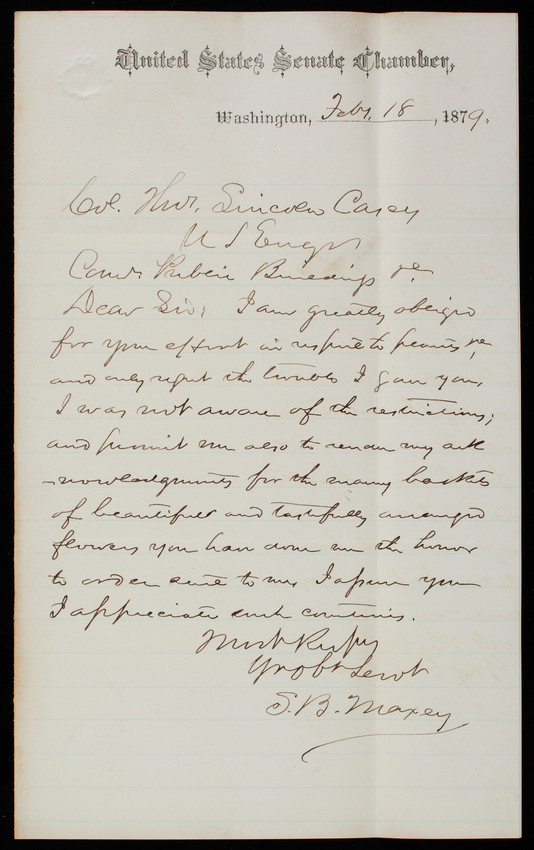 United States Senate Chamber,
Washington, Feby. 18, 1879.
Col. Thos. Lincoln Casey
U S Engrs
Comr. Public Buildings &c.
Dear Sir; I am greatly obliged
for your effort in respect to plants &c,
and only regret the trouble I gave you.
I was not aware of the restrictions;
and permit me also to render my ack
-nowledgments for the many baskets
of beautiful and tastefully arranged
flowers you have done me the honor
to order sent to me. I assure you
I appreciate such courtesies.
Most Respy
Yr obt Servt
S. B. Maxey